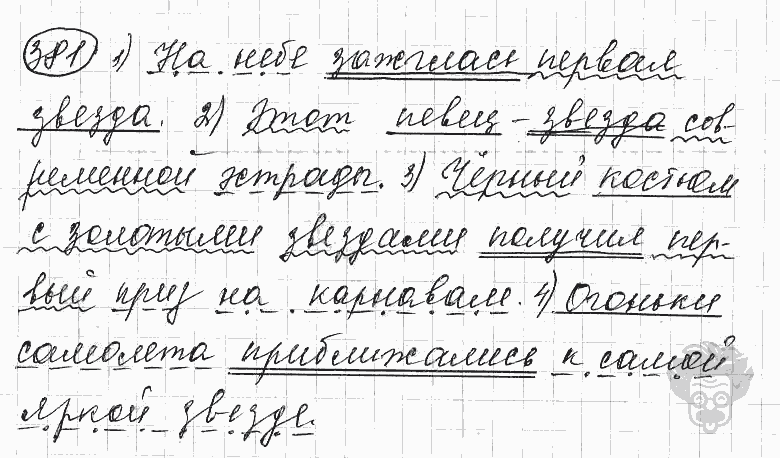 381 1) На небе зажглась первая
звезда. 2) Этот певец – звезда сов-
ременной эстрады. 3) Чёрный костюм
с золотыми звездами получил пер-
вый приз на карнавале. 4) Огоньки
самолета приближались к самой
яркой звезде.